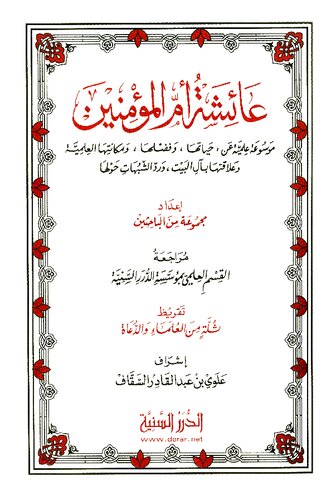 عَائِشَةُ أُمُّ المُؤْمِنِين
مَوسُوعَة عِلميَّة عَن: حَيَاتهَا، وَفَضْلهَا، وَمَكانَتِهَا العِلميَّة
وَعَلاقَتِهَا بِآلِ البَيْت، وَرَدّ الشُّبُهَاتِ حَوْلهَا
إعْدَاد
مجمُوعَة مِنَ البَاحِثين
مُرَاجَعَة
القِسْمِ العِلْميّ بِمُؤَسَّسَةِ الدُّرَرِ السَّنِيَّة
تَقْرِيظ
ثُلَّةٍ مِنَ العُلَمَاءِ وَالدُّعَاة
إشْرَاف
عَلَوي بن عَبد القَادِر السَّقَّاف
الدُّرَرُ السَّنِيَّة
www.dorar.net